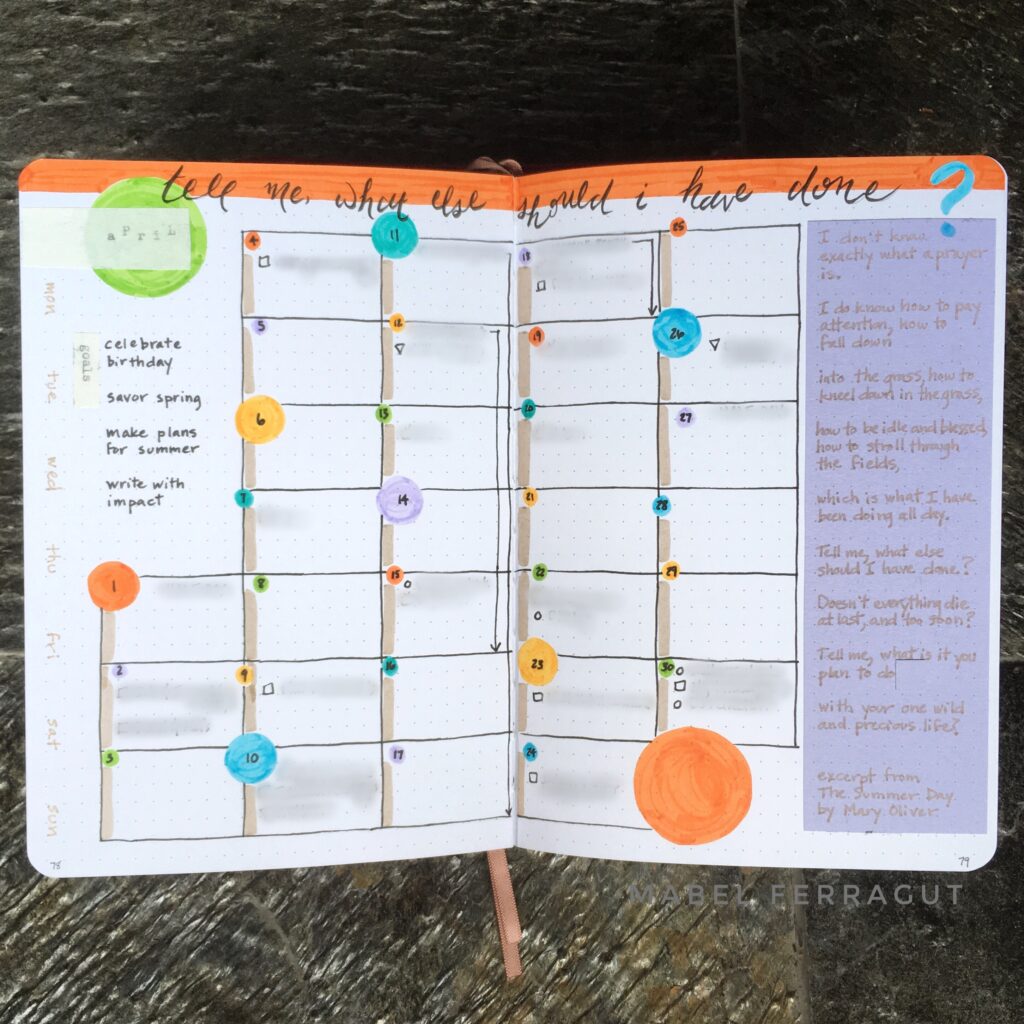 tell me, what else should i have done ?
aPriL
mon
tue
wed
thu
fri
sat
sun
goals
celebrate
birthday
savor spring
make plans
for summer
write with
impact
1
2
3
4
5
6
7
8
9
10
11
12
13
14
15
16
17
18
19
20
21
22
23
24
25
26
27
28
29
30
I don't know
exactly what a prayer
is.
I do know how to pay
attention, how to
fall down
into the grass, how to
kneel down in the grass,
how to be idle and blessed,
how to stroll through
the fields,
which is what I have
been doing all day.
Tell me, what else
should I have done?
Doesn't everything die
at last, and too soon?
Tell me, what is it you
plan to do
with your one wild
and precious life?
excerpt from
The Summer Day
by Mary Oliver
78
79
MABEL FERRAGUT